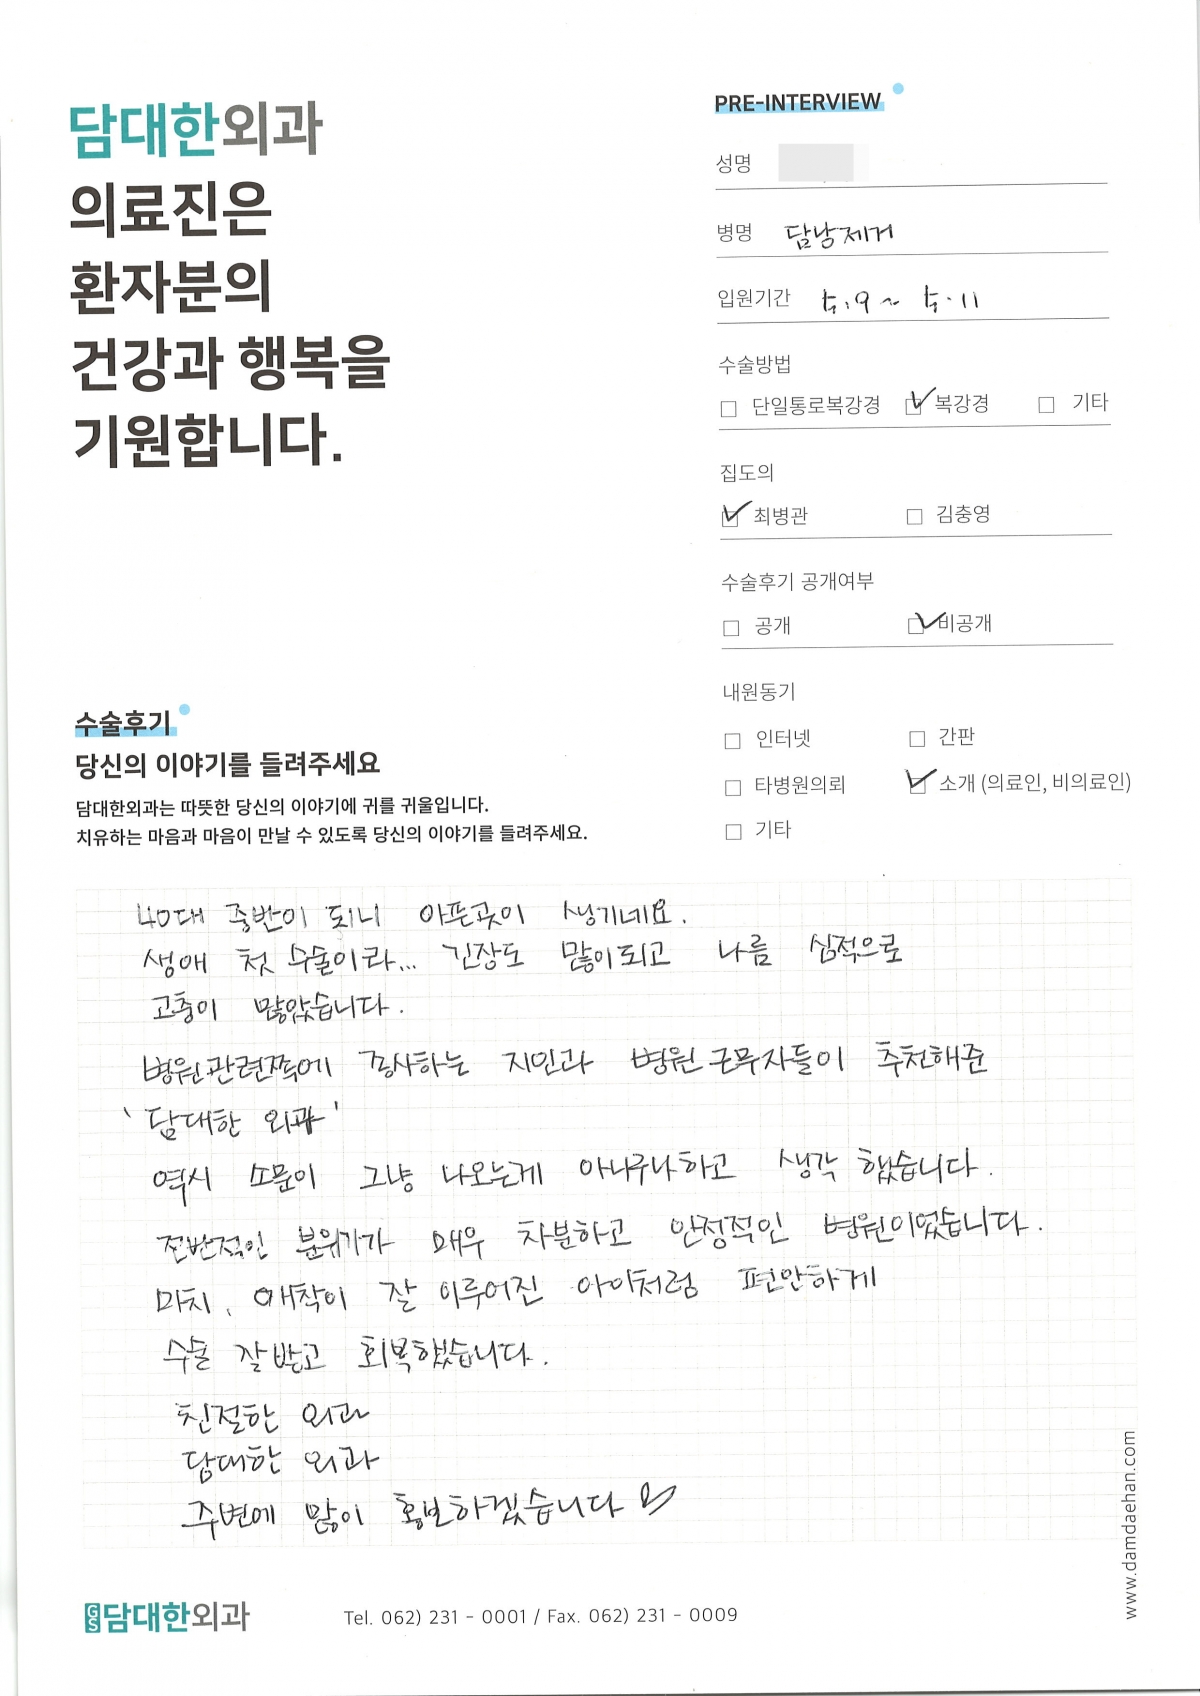 담대한외과
의료진은
환자분의
건강과 행복을
기원합니다.
PRE-INTERVIEW
성명
병명 담낭제거
입원기간 5.9 ~ 5.11
수술방법
단일통로복강경 복강경 기타
집도의
최병관 김충영
수술후기 공개여부
공개 비공개
내원동기
인터넷 간판
타병원의뢰 소개 (의료인, 비의료인)
기타
수술후기
당신의 이야기를 들려주세요
담대한외과는 따뜻한 당신의 이야기에 귀를 귀울입니다.
치유하는 마음과 마음이 만날 수 있도록 당신의 이야기를 들려주세요.
40대 중반이 되니 아픈곳이 생기네요.
생애 첫 수술이라... 긴장도 많이되고 나름 심적으로
고충이 많았습니다.
병원관련쪽에 종사하는 지인과 병원 근무자들이 추천해준
'담대한 외과'
역시 소문이 그냥 나오는게 아니구나하고 생각 했습니다.
전반적인 분위기가 매우 차분하고 안정적인 병원이었습니다.
마치, 애착이 잘 이루어진 아이처럼 편안하게
수술 잘받고 회복했습니다.
친절한 외과
담대한 외과
주변에 많이 홍보하겠습니다
GS담대한외과
Tel. 062) 231 - 0001 / Fax. 062) 231 - 0009
www.damdaehan.com